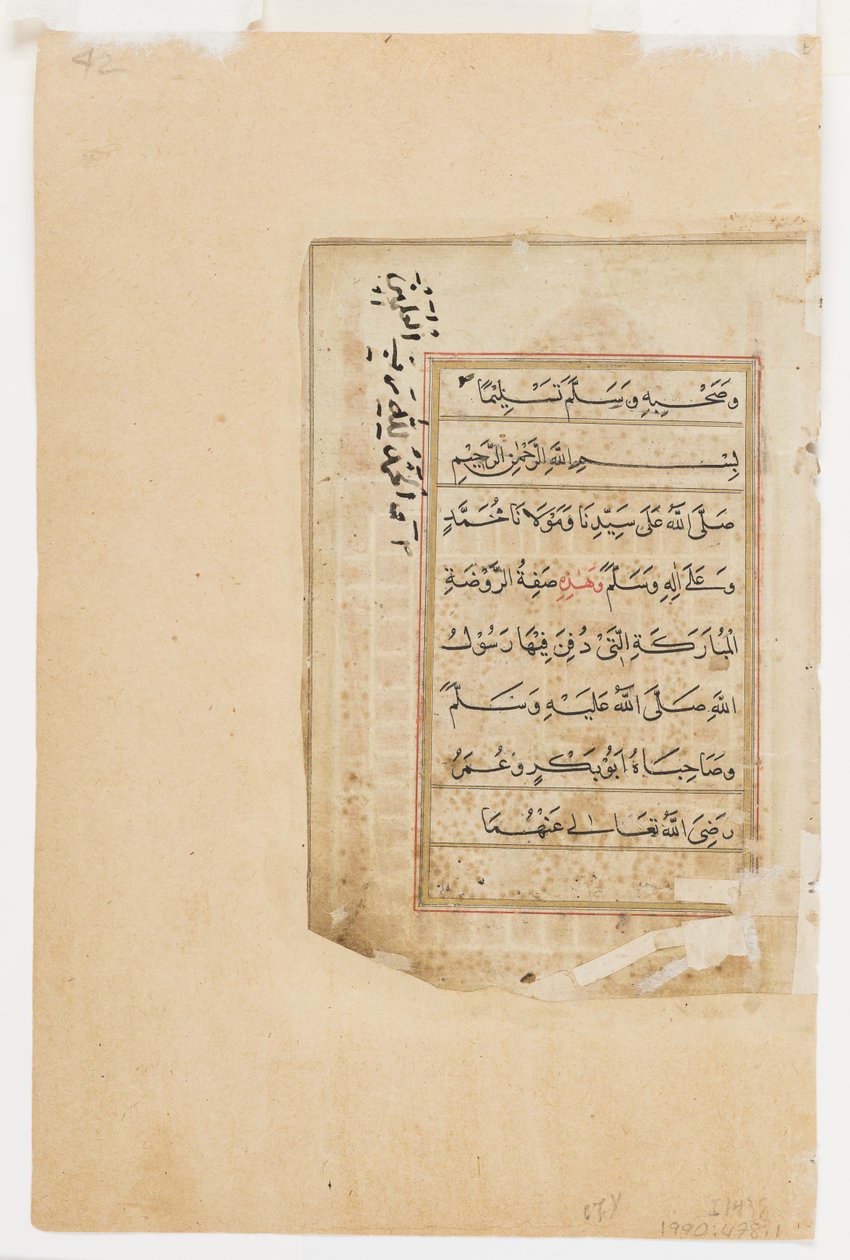 42
وَصَحْبِهِ وَسَلَّمَ تَسْلِيْمًا
بِسْمِ اللّٰهِ الرَّحْمٰنِ الرَّحِيْمِ
صَلَّى اللّٰهُ عَلَى سَيِّدِنَا وَمَوْلَانَا مُحَمَّدٍ
وَعَلَى اٰلِهِ وَسَلَّمَ وَهٰذِهِ صِفَةُ الرَّوْضَةِ
الْمُبَارَكَةِ الَّتِيْ دُفِنَ فِيْهَا رَسُوْلُ
اللّٰهِ صَلَّى اللّٰهُ عَلَيْهِ وَسَلَّمَ
وَصَاحِبَاهُ اَبُوْ بَكْرٍ وَعُمَرُ
رَضِيَ اللّٰهُ تَعَالٰى عَنْهُمَا
الحمد لله رب العلمين
1990:478:1